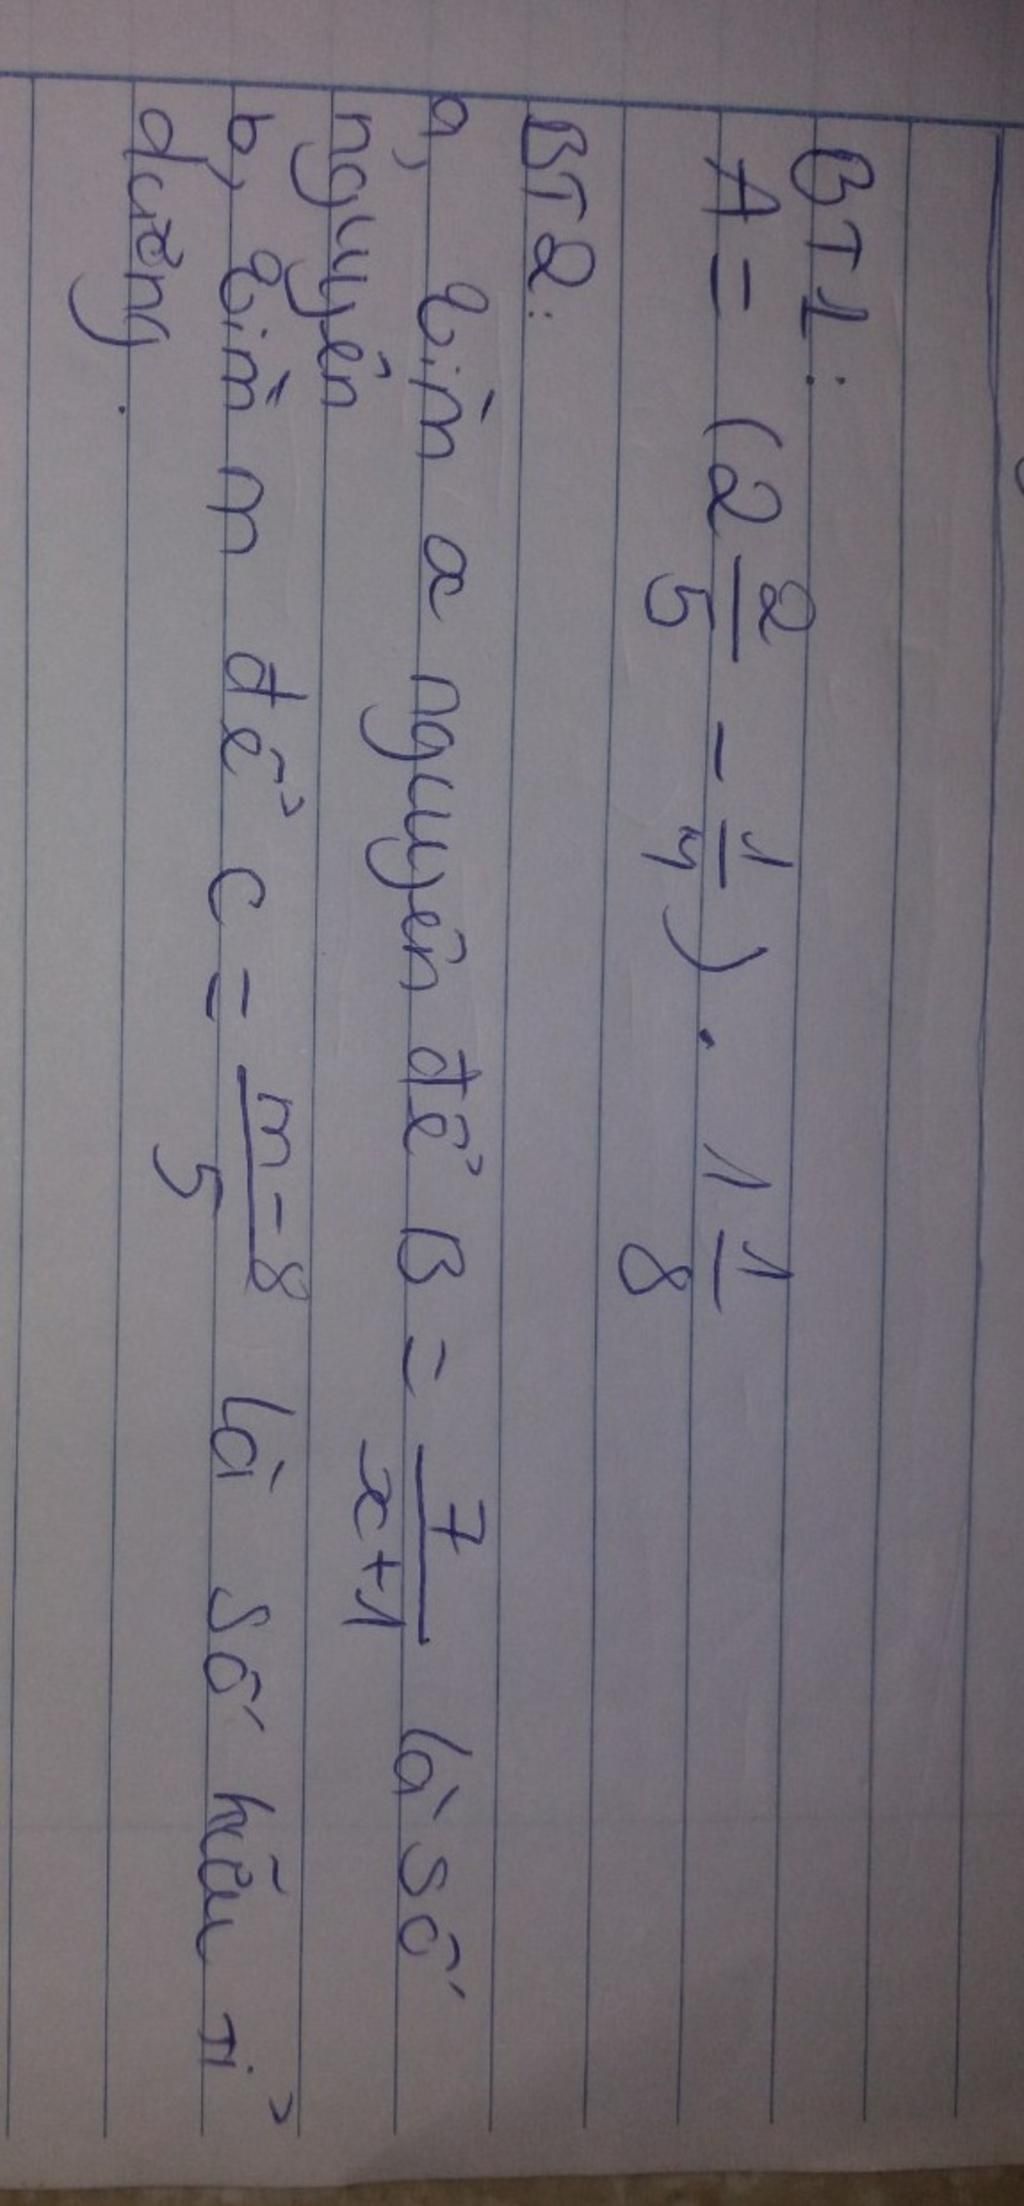 BT1:
A = (2 2/5 - 1/4) . 1 1/8
BT2:
a, Tìm x nguyên để B = 7/x+1 là số
nguyên
b, Tìm m để C = m-8/5 là số hữu tỉ
dương.